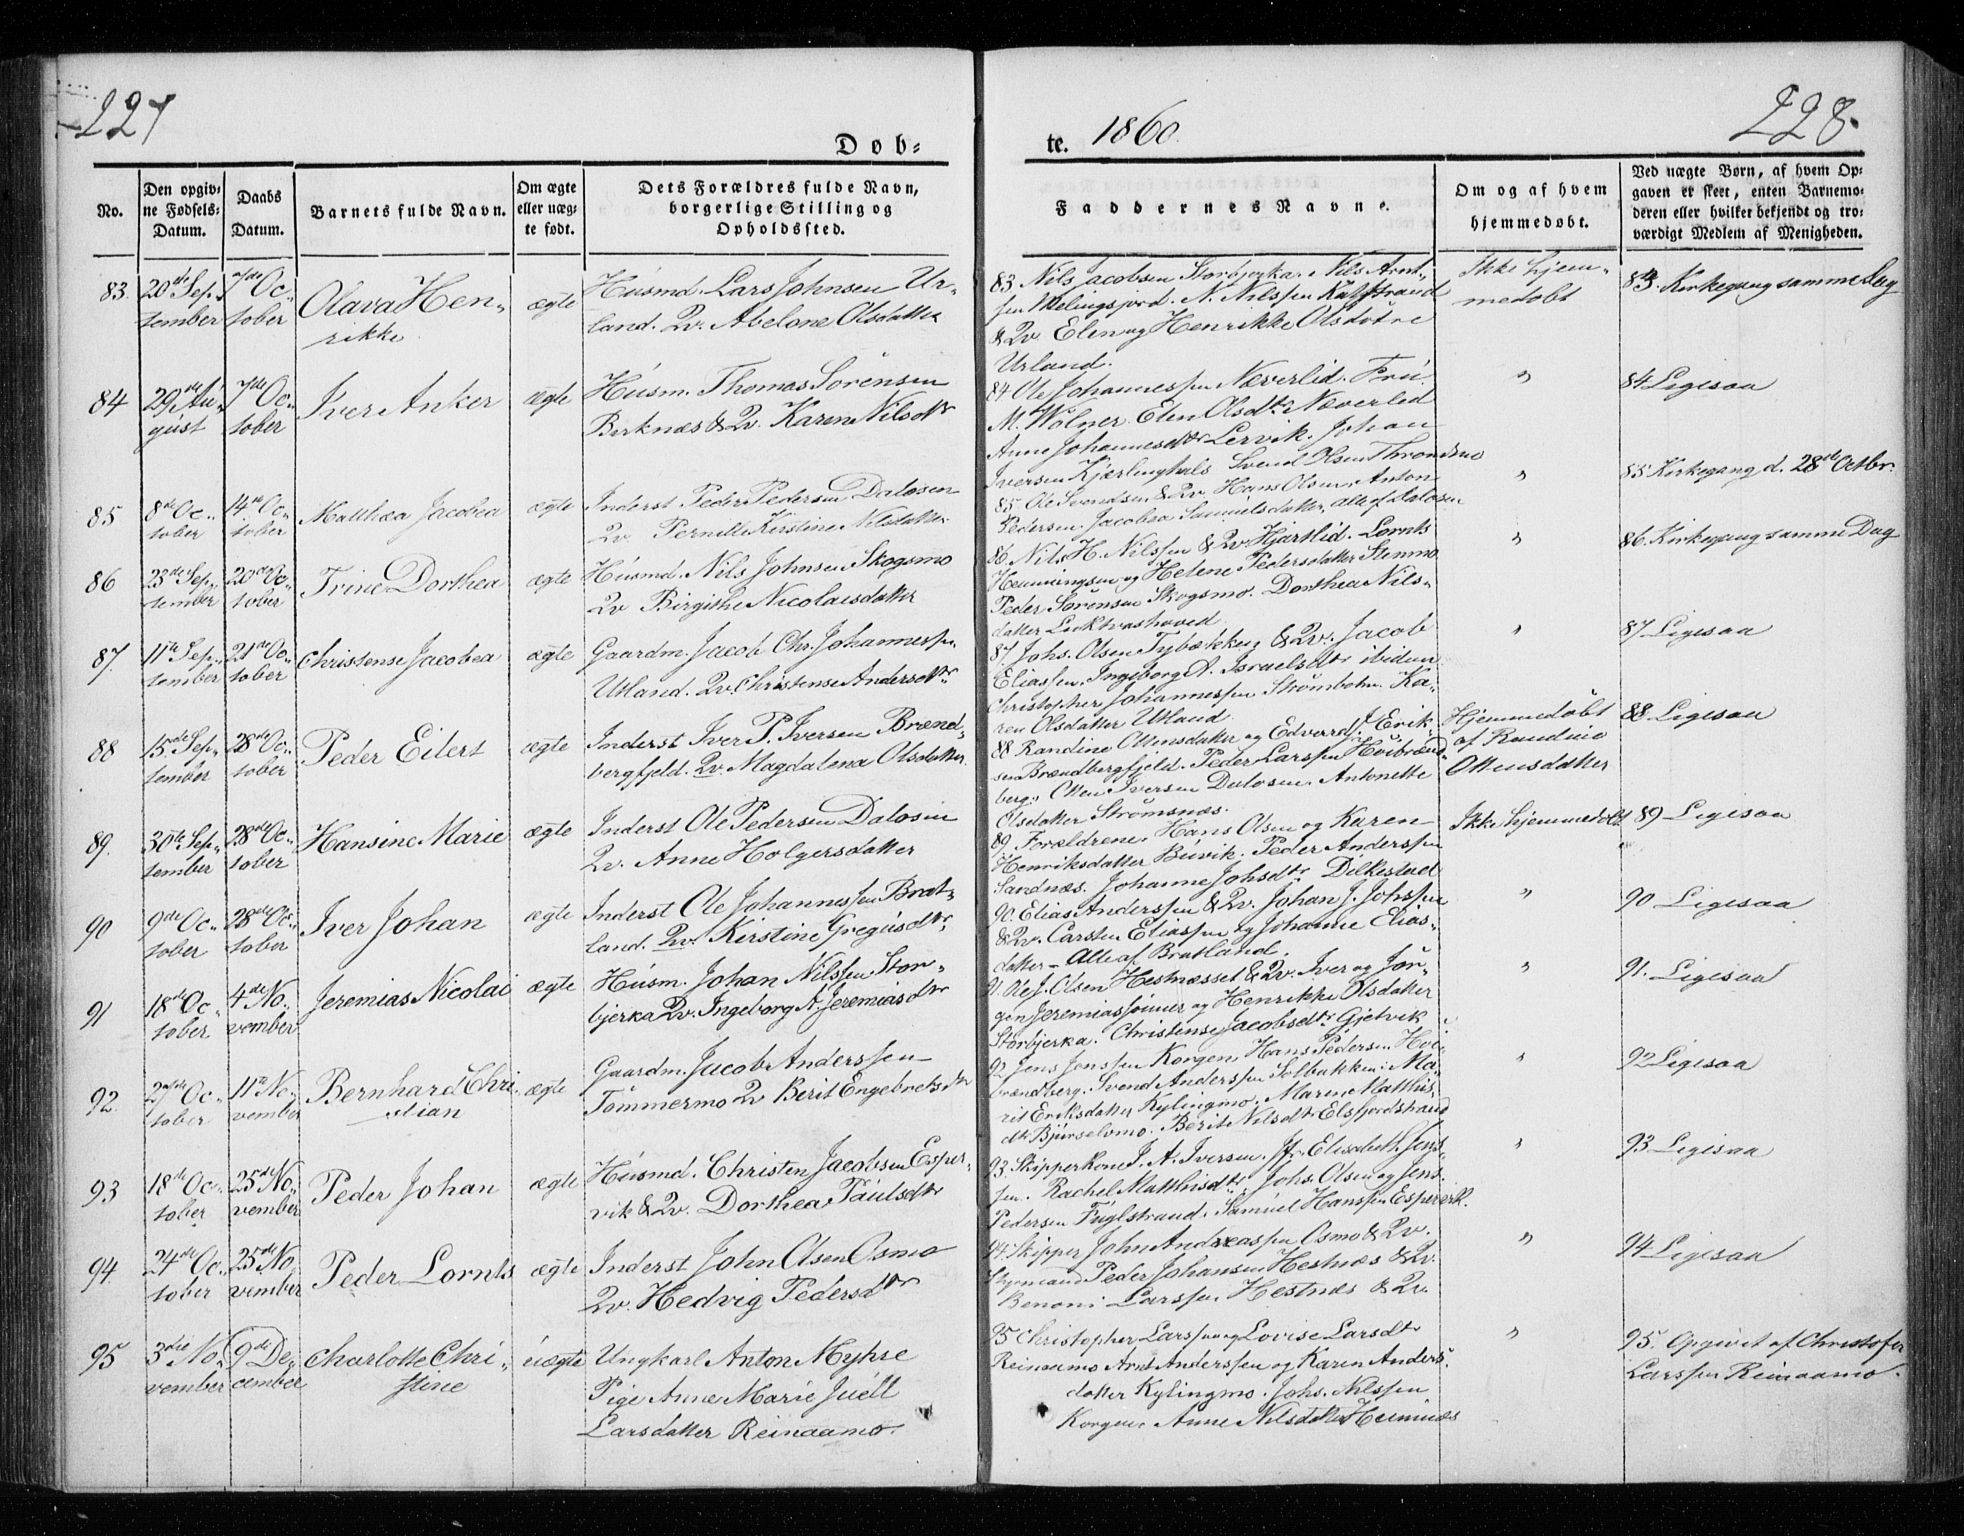 227
Døb-
No.
Den opgiv-
ne Fødsels-
Datum.
Daabs
Datum.
Barnets fulde Navn.
Om ægte
eller uæg-
te født.
Dets Forældres fulde Navn,
borgerlige Stilling og
Opholdssted.
83.
20de Sep-
tember
7de Oc-
tober
Olava Hen-
rikke
ægte
Husmd. Lars Johnsen Ur-
land. Qv. Abelone Olsdatter
84
29de Au-
gust
7de Oc-
tober
Iver Anker
ægte
Husm. Thomas Sörensen
Birknæs & Qv. Karen Nilsdtr
85
8de Oc-
tober
14de Oc-
tober
Matthæa Jacobea
ægte
Inderst Peder Pedersen Dalosen
Qv. Pernille Kirstine Nilsdatter
86
23de Sep-
tember
20de Oc-
tober
Trine Dorthea
ægte
Husmd. Nils Johnsen Skogsmo
Qv Birgithe Nicolaisdatter
87.
11te Sep-
tember
21de Oc-
tober
Christense Jacobea
ægte
Gaardm. Jacob Chr. Johannessen
Utland. Qv. Christense Andersdtr
88
15de Sep-
tember
28de Oc-
tober
Peder Eilert
ægte
Inderst Iver P. Iversen Brænd-
bergfjeld. Qv. Magdalena Olsdatter
89.
30te Sep-
tember
28de Oc-
tober
Hansine Marie
ægte
Inderst Ole Pedersen Dalosen
Qv. Anne Holgersdatter
90
9de Oc-
tober
28de Oc-
tober
Iver Johan
ægte
Inderst Ole Johannessen Brat-
land. Qv. Kirstine Gregusdtr
91
18de Oc-
tober
4de No-
vember
Jeremias Nicolai
ægte
Husm. Johan Nilssen Stor-
bjerka Qv. Ingeborg A. Jeremiasdtr
92.
27de Oc-
tober
11te No-
vember
Bernhard Chri-
stian
ægte
Gaardm. Jacob Anderssen
Tömmermo Qv Berit Engebretsdtr
93
18de Oc-
tober
25de No-
vember
Peder Johan
ægte
Husmd. Christen Jacobsen Esper-
vik & Qv. Dorthea Paulsdtr
94
24de Oc-
tober
25de No-
vember
Peder Lornts
ægte
Inderst John Olsen Osmo
Qv. Hedvig Pedersdtr
95
3die No-
vember
9de De-
cember
Charlotte Chri-
stine
uægte
Ungkarl Anton Myhre
Pige Anne Marie Juell
Larsdatter Reinaamo.
te. 1860.
228.
Faddernes Navne.
Om og af hvem
hjemmedøbt.
Ved uægte Børn, af hvem Op-
gaven er skeet, enten Barnemo-
deren eller hvilker bekjendt og tro-
værdigt Medlem af Menigheden.
83 Nils Jacobsen Storbjerka. Nils Arnt-
sen N. Nilssen Kalfstrand
& Qv. Elen og Henrikke Olsdötre
Urland.
Ikke hjem-
medøbt
83. Kirkegang samme Dag
84 Ole Johannessen Næverlid. Fru
M. Wolner. Elen Olsdtr Næverlid
Anne Johannesdtr Lervik. Johan
Iversen Kjærlinghals Svend Olsen Throndsmo
"
84 Ligesaa
85 Ole Svendsen & Qv. Hans Olsen, Anton
Pedersen, Jacobea Samuelsdatter, alle af Dalosen
"
85 Kirkegang d. 28de Octbr.
86. Nils H. Nilssen & Qv. Hjartlid. Lornts
Henningsen og Helene Pedersdatter Stenmo
Peder Sørensen Skogsmo. Dorthea Nils-
datter
"
86. Kirkegang samme Dag
87. Johs. Olsen Tybækken & Qv. Jacob
Eliassen, Ingeborg A. Israelsdtr ibidem
Christopher Johannessen Strømbotn. Ka-
ren Olsdatter Utland.
"
87 Ligesaa
88 Randine Ottensdatter og Edvard J. Erik-
sen Brændbergfjeld. Peder Larssen Hvibrænd-
berg. Otten Iversen Dalosen. Antonette
Olsdatter Strømsnæs.
Hjemmedøbt
af Randine
Ottensdatter
88 Ligesaa
89 Forældrene, Hans Olsen og Karen
Henriksdatter Buvik. Peder Anderssen
Sandnæs. Johanne Johsdtr Dilkestad
Ikke hjemmedøbt
89 Ligesaa
90. Elias Anderssen & Qv. Johan J. Johssen
& Qv. Carsten Eliassen og Johanne Elias-
datter – Alle af Bratland.
"
90 Ligesaa
91. Ole J. Olsen Hestnæsset & Qv. Iver og Jör-
gen Jeremiassönner og Henrikke Olsdatter
Storbjerka. Christense Jacobsdtr Gjetvik
"
91. Ligesaa
92 Jens Jenssen Korgen, Hans Pedersen Hvi-
brændberg. Svend Anderssen Solbakken. Ma-
rit Eriksdatter Kylingmo. Maren Matthis-
dtr Bjurselvmo. Berit Nilsdtr Elsfjordstrand
"
92 Ligesaa
93. Skipperkone J. A. Iversen. Jfr. Elisabeth Jens-
sen. Rachel Matthisdtr, Johs. Olsen og Jens
Pedersen Fuglstrand. Samuel Hanssen Espervik.
"
93. Ligesaa
94. Skipper John Andreassen Osmo & Qv.
Styrmand Peder Johansen Hestnæs & Qv.
Benoni Larssen Hestnæs & Qv.
"
94 Ligesaa
95 Christopher Larssen og Lovise Larsdtr
Reinaamo Arnt Anderssen og Karen Anders-
datter Kylingmo. Johs. Nilssen
Korgen, Anne Nilsdatter
"
95. Opgivet af Christofer
Larssen Reinaamo.